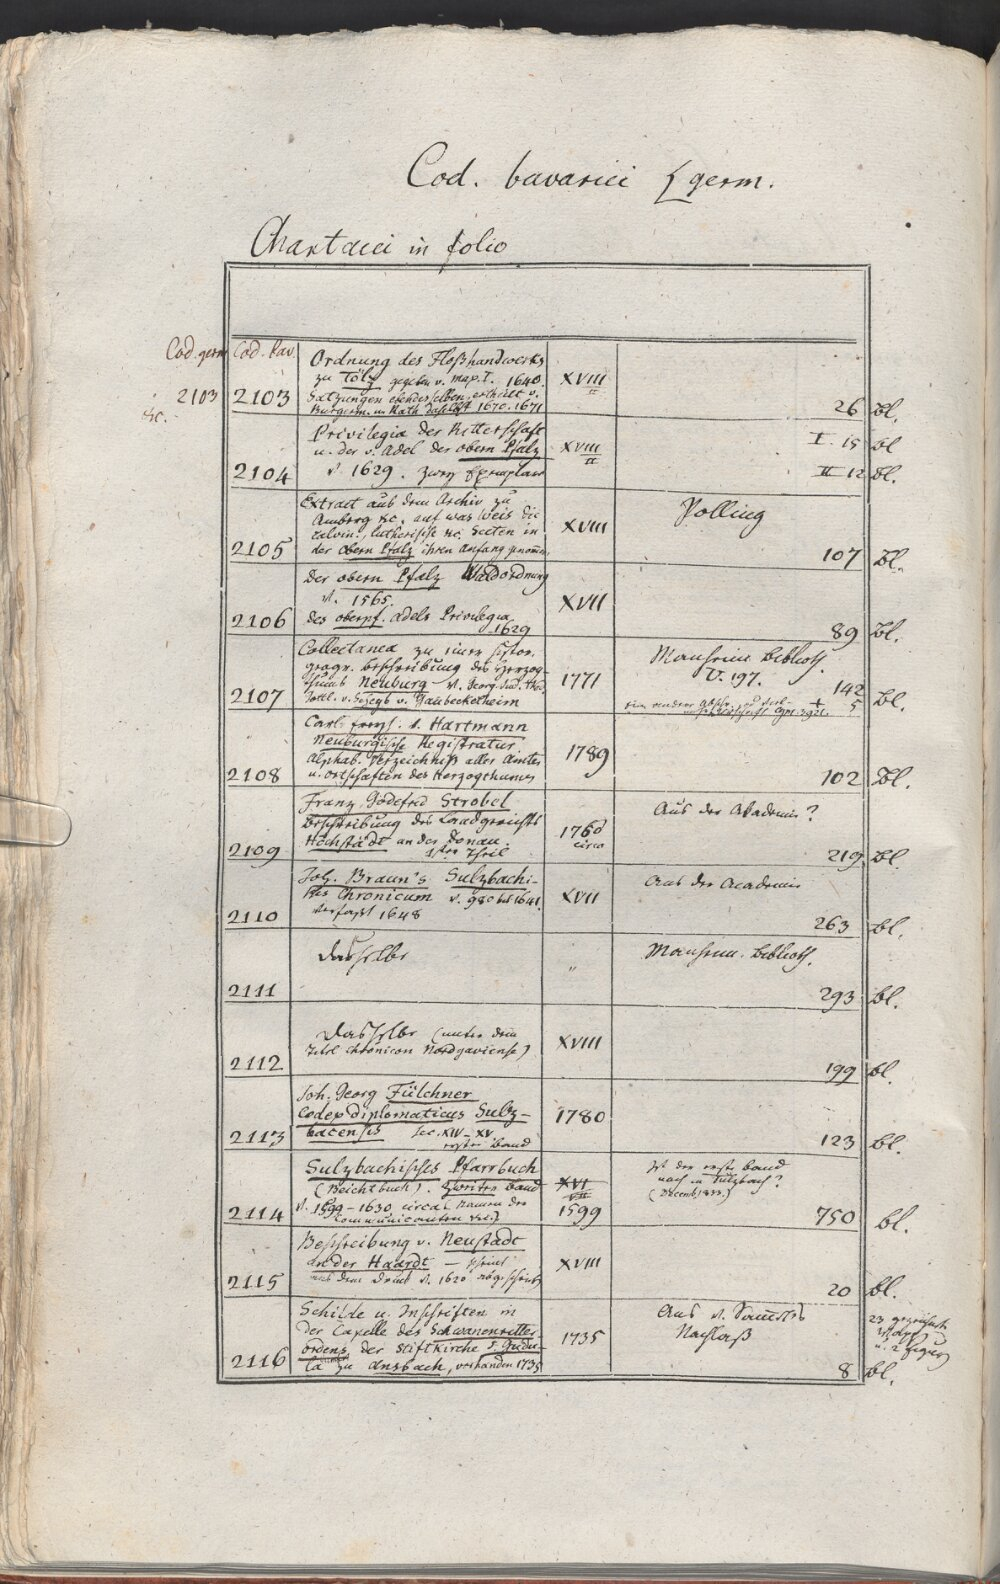 Cod. bavarici [germ.
Chartacei in folio
Cod. germ. Cod. bav.
2103
&c.
2103
Ordnung des Floßhandwerks
zu Tölz gegeben v. Max. I. 1640.
Satzungen ebendesselben, ertheilt v.
Burgerm. u. Rath daselbst 1670. 1671
XVIII
II
26 Bl.
2104
Privilegia der Ritterschaft
u. der v. Adel der obern Pfalz
v. 1629. zwey Exemplare
XVIII
II
I. 15 Bl
II 12 Bl.
2105
Extract aus dem Archiv zu
Amberg &c. auf was Weis die
calvin., lutherische &c. Secten in
der obern Pfalz ihren Anfang genommen
XVIII
Polling
107 Bl.
2106
Der obern Pfalz Waldordnung
v. 1565.
des oberpf. Adels Privilegia
1629
XVII
89 Bl.
2107
Collectanea zu einer histor.
geogr. Beschreibung des Herzog-
thums Neuburg v. Georg
Gaubeckelheim
1771
Manheim. Biblioth.
V. 197.
142
+
5 Bl.
2108
Carl v. Hartmann
Neuburgische Registratur
Alphab. Verzeichniß aller Aemter
u. Ortschaften des Herzogthumes
1789
102 Bl.
2109
Franz Godefrid Strobel
Beschreibung des Landgerichts
Höchstädt an der Donau.
1ster Theil
1760
circa
Aus der Akademie?
219 Bl
2110
Joh. Braun's Sulzbachi-
sches Chronicum v. 980 bis 1641.
verfaßt 1648
XVII
Aus der Academie
263 Bl.
2111
Dasselbe
"
Manheim. Biblioth.
293 Bl.
2112
Dasselbe (unter dem
Titel Chronicon Nordgaviense)
XVIII
199 Bl.
2113
Joh. Georg Fülchner
Codex diplomaticus Sulz-
bacensis sec. XIV–XV
erster Band
1780
123 Bl.
2114
Sulzbachisches Pfarrbuch
(Beichtbuch). Zweiter Band
v. 1599–1630 circa (Namen der
Communicanten
XVI
XVII
1599
Ist der erste Band
noch in Sulzbach?
750 Bl.
2115
Beschreibung v. Neustadt
an der Haardt – scheint
aus dem Druck v. 1620 abgeschrieben
XVIII
20 Bl.
2116
Schilde u. Inschriften in
der Capelle des Schwanenritter-
ordens, der Stiftkirche S. Gude-
la zu Ansbach, vorhanden 1735
1735
Aus v.
Nachlaß
8 Bl.
23
u. 2 Figuren